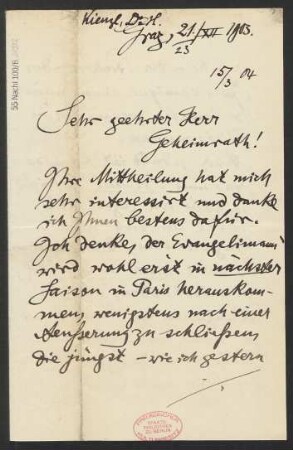 Kienzl, Dr. W.
Graz, 21/XII 1903.
23
15/3 04
55 Nachl 100/B
Sehr geehrter Herr
Geheimrath!
Ihre Mittheilung hat mich
sehr interessirt und danke
ich Ihnen bestens dafür.
Ich denke, der Evangelimann
wird wohl erst in nächster
Saison in Paris herauskom-
men, wenigstens nach einer
Aeusserung zu schließen,
die jüngst – wie ich gestern